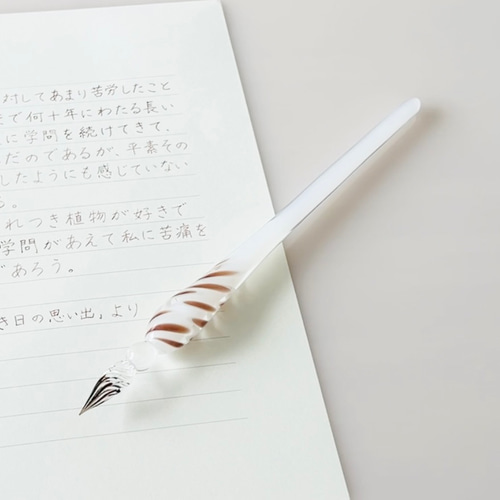 対してあまり苦労したこと
で何十年にわたる長い
に学問を続けてきて、
だのであるが、平素その
したようにも感じていない
る。
れつき植物が好きで
学問があえて私に苦痛を
であろう。
き日の思い出」より